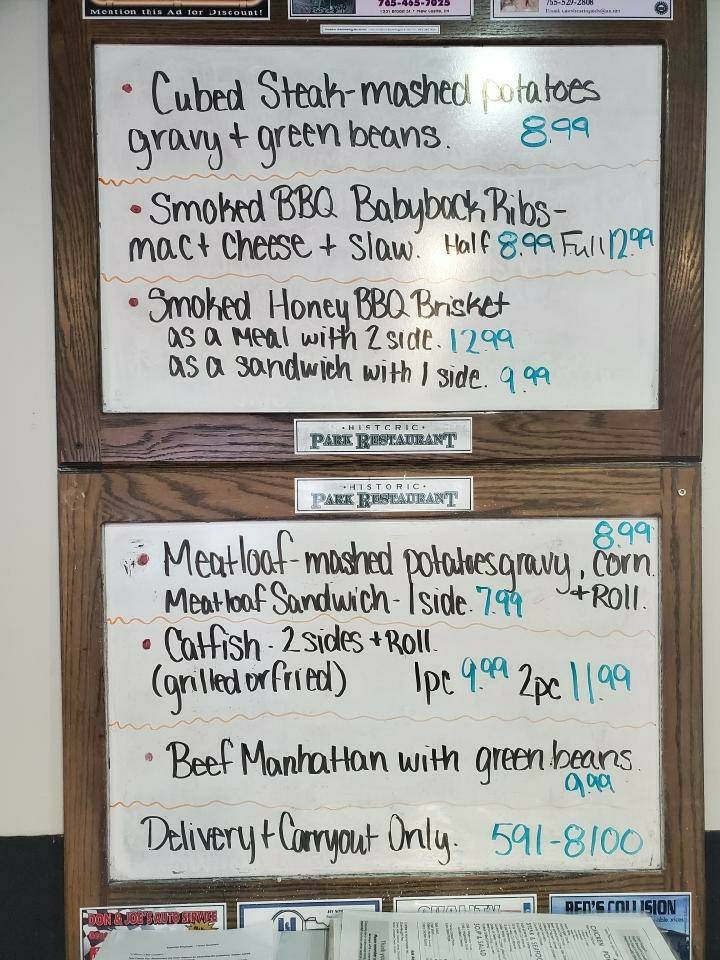 Mention this Ad for Discount!
765-465-7025
765-529-2808
• Cubed Steak-mashed potatoes
gravy + green beans. 8.99
• Smoked BBQ Babyback Ribs-
mac + cheese + slaw. Half 8.99 Full 12.99
• Smoked Honey BBQ Brisket
as a meal with 2 side. 12.99
as a sandwich with 1 side. 9.99
• HISTORIC •
PARK RESTAURANT
• HISTORIC •
PARK RESTAURANT
8.99
• Meatloaf-mashed potatoes gravy, corn
Meatloaf Sandwich-1 side. 7.99 + Roll.
• Catfish - 2 sides + Roll.
(grilled or fried) 1pc 9.99 2pc 11.99
• Beef Manhattan with green beans.
9.99
Delivery + Carryout Only. 591-8100
DON & JOE'S AUTO SERVICE
QUALITY
RED'S COLLISION
SOUP & SALAD